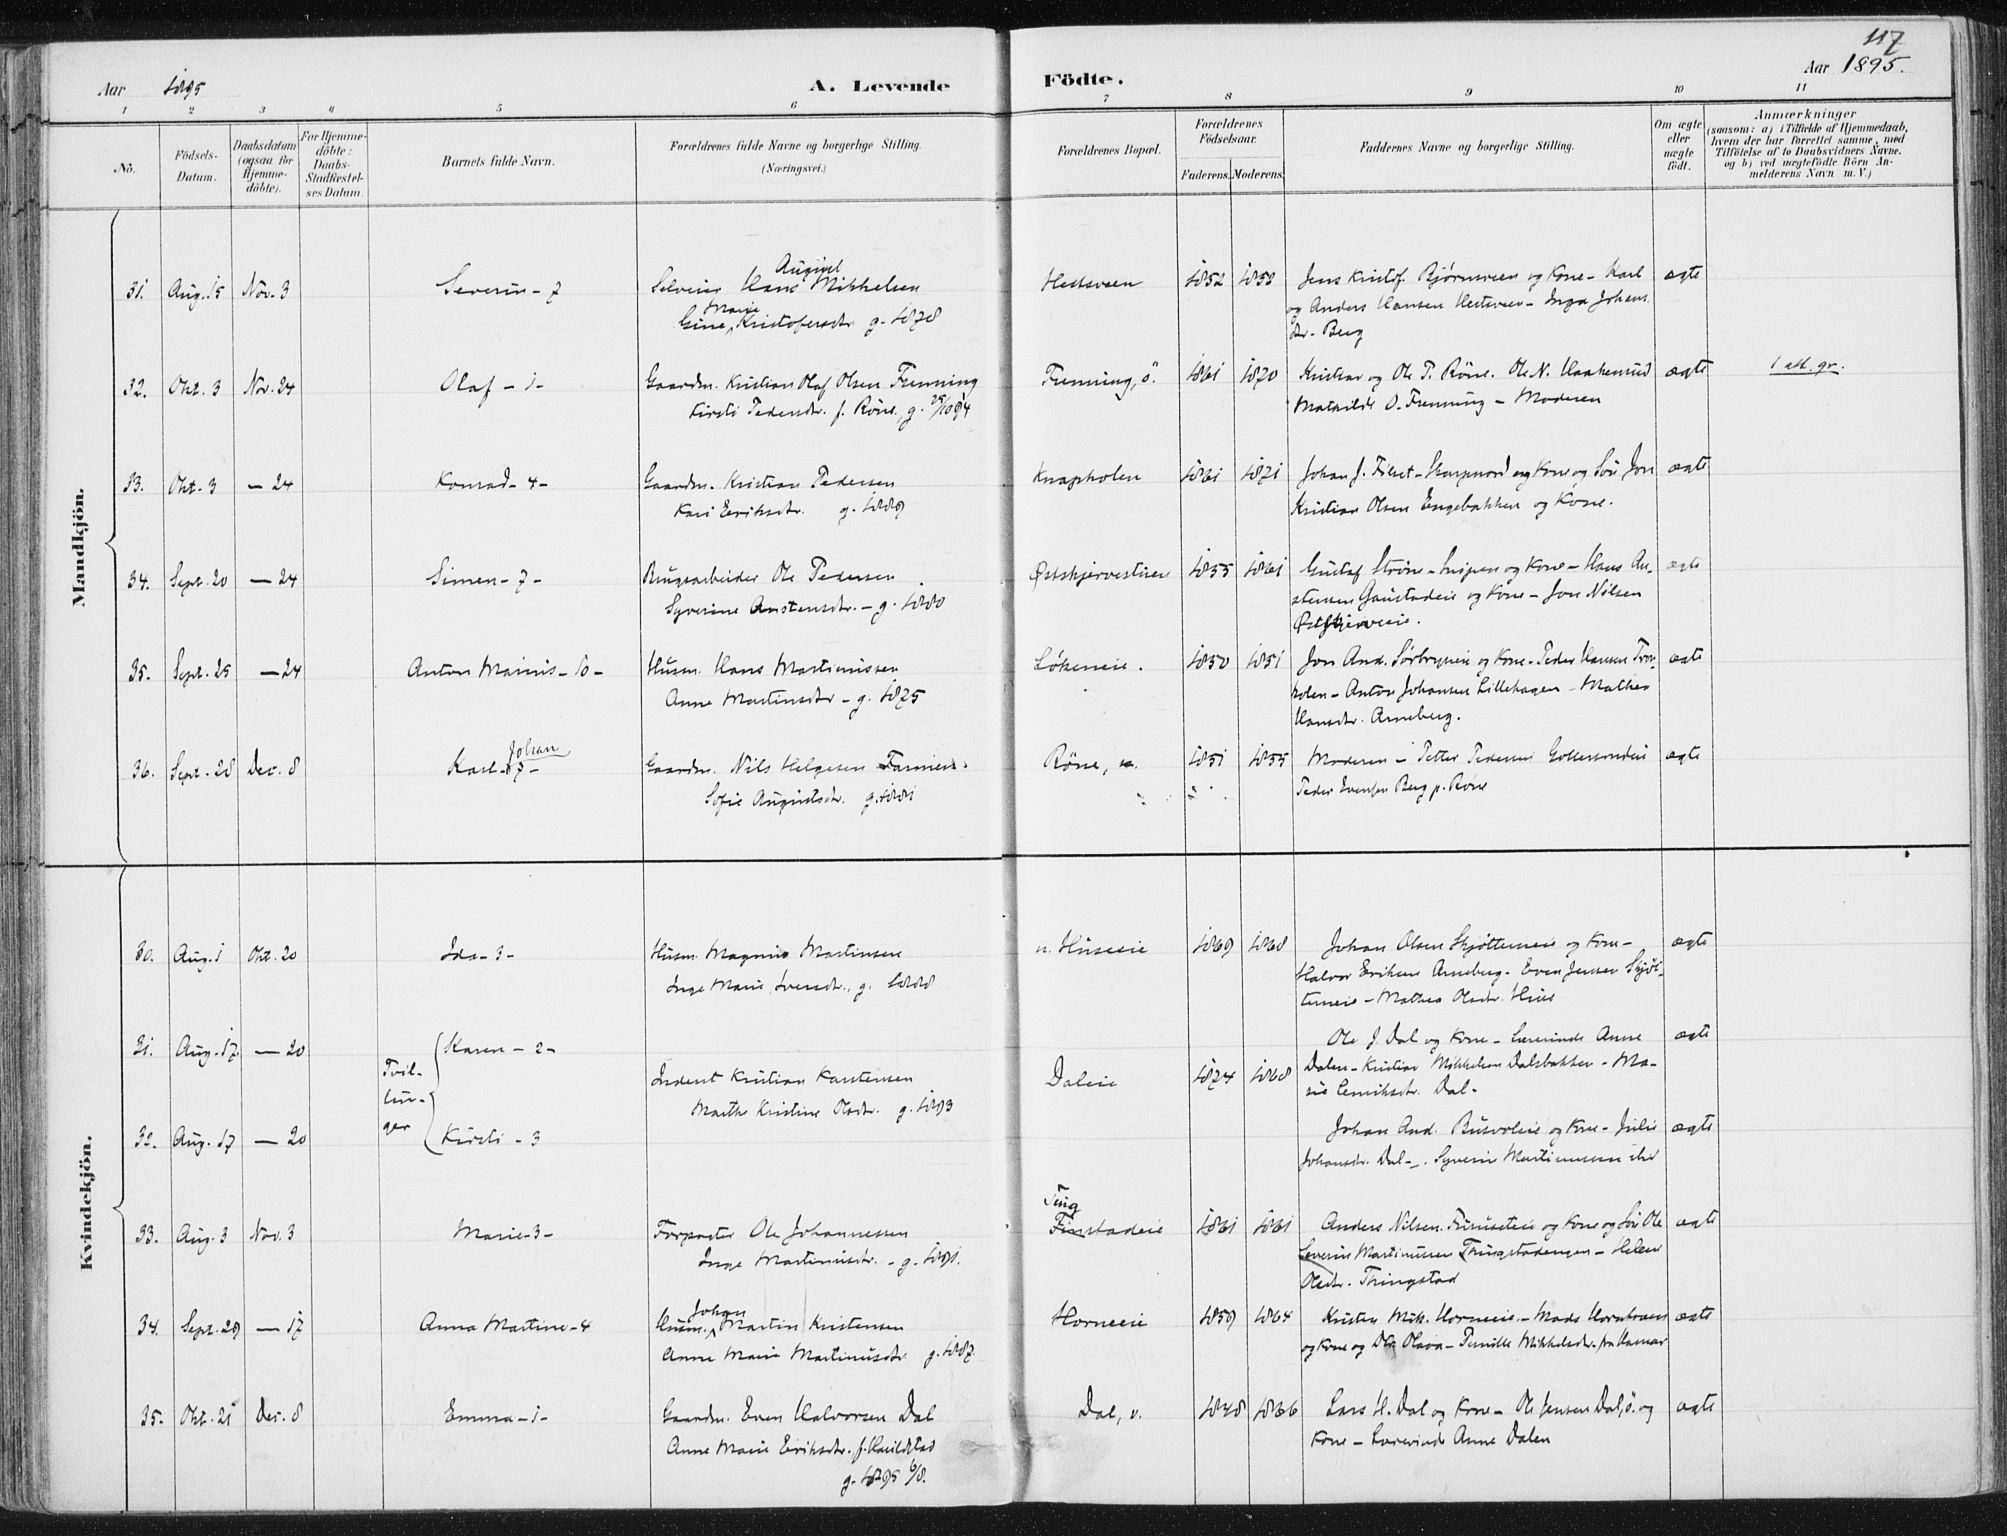 117
Aar 1895 A. Levende Födte. Aar 1895.
1 2 3 4 5 6 7 8 9 10 11
No.
Födsels-Datum.
Daabsdatum (ogsaa for Hjemmedöbte).
For Hjemmedöbte: Daabs-Stadfæstelses Datum.
Barnets fulde Navn.
Forældrenes fulde Navne og borgerlige Stilling.
(Næringsvei.)
Forældrenes Bopæl.
Forældrenes Födselsaar.
Faderens. Moderens.
Faddernes Navne og borgerlige Stilling.
Om ægte eller uægte födt.
Anmærkninger
(saasom: a) i Tilfælde af Hjemmedaab,
hvem der har forrettet samme, med
Tilföielse af to Daabsvidners Navne.
og b) ved uægtefödte Börn Anmelderens Navn m. V.)
Mandkjön.
31. Aug. 15 Nov. 3 Severin - 7 Selveier Hans August Mikkelsen
Gine Marie Kristofersdtr g. 1878
Hestveen 1852 1853
Jens Kristof. Bjørnsveen og Kone - Karl
og Anders Hansen Hestveen - Inga Johans
dr. Berg
ægte
32. Okt. 3 Nov. 24 Olaf - 1 - Gaardm. Kristian Olaf Olsen Frenning
Kirsti Pedersdtr. f. Röne, g.
Frenning, ö. 1861 1870
Kristian og Ole P. Röne. Ole N. Haakenrud
Mathilde O. Frenning - Moderen
ægte 1 att. gr.
33. Okt. 3 - 24 Konrad - 4 - Gaardm. Kristian Pedersen
Kari Eriksdtr. g. 1889
Knapholen 1861 1871
Johan J. og Kone og Sön Jon
Kristian Olsen Engebakken og Kone.
ægte
34. Sept. 20 - 24 Simen - 7 - Brugsarbeider Ole Pedersen
Syverine Anstensdtr. - g. 1880
Østskjervestuen 1855 1861
Gustaf Ström - og Kone - Hans An-
stensen Gaustadeie og Kone - Jon Nilsen
Østskjerveeie.
ægte
35. Sept. 25 - 24 Anton Marius - 10 - Husm. Hans Martinussen
Anne Martinsdtr - g. 1875
Løkeneie. 1850 1851
Jon And. og Kone - Peder Hansen
- Anton Johansen Lillehagen - Mathea
Hansdtr. Arneberg.
ægte
36. Sept. 28 Dec. 8 Karl Johan - 7 - Gaardm. Nils Helgesen
Sofie Augustsdtr. g. 1881
Röne, n. 1851 1855
Moderen - Petter Pedersen
Peder Evensen Berg p. Röne
ægte
Kvindekjön.
30. Aug. 1 Okt. 20 Ida - 3 - Husm. Magnus Martinsen
Inge Marie Iversdtr., g. 1888
n. Huseeie 1869 1868
Johan Olsen Skjötteneie og Kone -
Halvor Eriksen Arneberg - Even Jensen Skjöt-
teneie - Mathea Olsdtr. Huse
ægte
31. Aug. 17 - 20 Tvil-
lin-
ger
Karen - 2 -
Inderst Kristian Karstensen
Marthe Kristine Olsdtr. g. 1893
Daleie 1874 1868
Ole J. Dal og Kone - Lærerinde Anne
Dalen - Kristian Mikkelsen Dalsbakken - Ma-
rie Henriksdtr. Dal -
ægte
32. Aug. 17 - 20 Kirsti - 3
Johan And. og Kone - Julie
Johansdtr. Dal -. Syverin Martinussen
ægte
33. Aug. 3 Nov. 3 Marie - 3 - Forpagter Ole Johannessen
Inge Martinusdtr. - g. 1881.
Ting
Finstadeie 1861 1861
Anders Nilsen og Kone og Sön Ole
Severin Martinussen Thingstadengen - Helene
Olsdtr. Thingstad
ægte
34. Sept. 29 - 17 Anna Martine - 4 Husm. Johan Martin Kristensen
Anne Marie Martinusdtr g. 1887
Horneeie 1859 1864
Kristen Mik. Horneeie. - Mads
og Kone og Dtr. Olava - Pernille Mikkelsdtr. fra Hamar
ægte
35. Okt. 21 Dec. 8 Emma - 1 - Gaardm. Even Halvorsen Dal
Anne Marie Eriksdtr. f.
g. 1895 6/8.
Dal, v. 1848 1866
Lars H. Dal og Kone - Ole Jensen Dal, ö. og
Kone - Lærerinde Anne Dalen
ægte